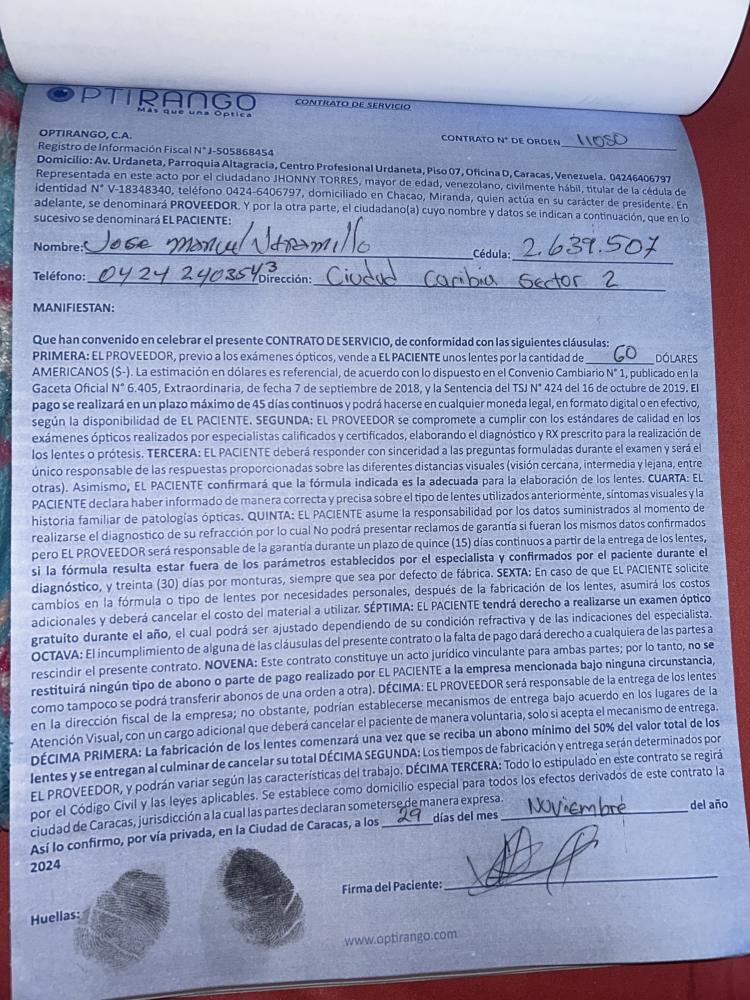 OPTIRANGO
Más que una Óptica
CONTRATO DE SERVICIO
CONTRATO N° DE ORDEN 11050
OPTIRANGO, C.A.
Registro de Información Fiscal N°J-505868454
Domicilio: Av. Urdaneta, Parroquia Altagracia, Centro Profesional Urdaneta, Piso 07, Oficina D, Caracas, Venezuela. 04246406797
Representada en este acto por el ciudadano JHONNY TORRES, mayor de edad, venezolano, civilmente hábil, titular de la cédula de
identidad N° V-18348340, teléfono 0424-6406797, domiciliado en Chacao, Miranda, quien actúa en su carácter de presidente. En
adelante, se denominará PROVEEDOR. Y por la otra parte, el ciudadano(a) cuyo nombre y datos se indican a continuación, que en lo
sucesivo se denominará EL PACIENTE:
Nombre: Jose Manuel Jaramillo Cédula: 2.639.507
Teléfono: 0424 2403543 Dirección: Ciudad Caribia Sector 2
MANIFIESTAN:
Que han convenido en celebrar el presente CONTRATO DE SERVICIO, de conformidad con las siguientes cláusulas:
PRIMERA: EL PROVEEDOR, previo a los exámenes ópticos, vende a EL PACIENTE unos lentes por la cantidad de 60 DÓLARES
AMERICANOS ($-). La estimación en dólares es referencial, de acuerdo con lo dispuesto en el Convenio Cambiario N° 1, publicado en la
Gaceta Oficial N° 6.405, Extraordinaria, de fecha 7 de septiembre de 2018, y la Sentencia del TSJ N° 424 del 16 de octubre de 2019. El
pago se realizará en un plazo máximo de 45 días continuos y podrá hacerse en cualquier moneda legal, en formato digital o en efectivo,
según la disponibilidad de EL PACIENTE. SEGUNDA: EL PROVEEDOR se compromete a cumplir con los estándares de calidad en los
exámenes ópticos realizados por especialistas calificados y certificados, elaborando el diagnóstico y RX prescrito para la realización de
los lentes o prótesis. TERCERA: EL PACIENTE deberá responder con sinceridad a las preguntas formuladas durante el examen y será el
único responsable de las respuestas proporcionadas sobre las diferentes distancias visuales (visión cercana, intermedia y lejana, entre
otras). Asimismo, EL PACIENTE confirmará que la fórmula indicada es la adecuada para la elaboración de los lentes. CUARTA: EL
PACIENTE declara haber informado de manera correcta y precisa sobre el tipo de lentes utilizados anteriormente, síntomas visuales y la
historia familiar de patologías ópticas. QUINTA: EL PACIENTE asume la responsabilidad por los datos suministrados al momento de
realizarse el diagnostico de su refracción por lo cual No podrá presentar reclamos de garantía si fueran los mismos datos confirmados
pero EL PROVEEDOR será responsable de la garantía durante un plazo de quince (15) días continuos a partir de la entrega de los lentes,
si la fórmula resulta estar fuera de los parámetros establecidos por el especialista y confirmados por el paciente durante el
diagnóstico, y treinta (30) días por monturas, siempre que sea por defecto de fábrica. SEXTA: En caso de que EL PACIENTE solicite
cambios en la fórmula o tipo de lentes por necesidades personales, después de la fabricación de los lentes, asumirá los costos
adicionales y deberá cancelar el costo del material a utilizar. SÉPTIMA: EL PACIENTE tendrá derecho a realizarse un examen óptico
gratuito durante el año, el cual podrá ser ajustado dependiendo de su condición refractiva y de las indicaciones del especialista.
OCTAVA: El incumplimiento de alguna de las cláusulas del presente contrato o la falta de pago dará derecho a cualquiera de las partes a
rescindir el presente contrato. NOVENA: Este contrato constituye un acto jurídico vinculante para ambas partes; por lo tanto, no se
restituirá ningún tipo de abono o parte de pago realizado por EL PACIENTE a la empresa mencionada bajo ninguna circunstancia,
como tampoco se podrá transferir abonos de una orden a otra). DÉCIMA: EL PROVEEDOR será responsable de la entrega de los lentes
en la dirección fiscal de la empresa; no obstante, podrían establecerse mecanismos de entrega bajo acuerdo en los lugares de la
Atención Visual, con un cargo adicional que deberá cancelar el paciente de manera voluntaria, solo si acepta el mecanismo de entrega.
DÉCIMA PRIMERA: La fabricación de los lentes comenzará una vez que se reciba un abono mínimo del 50% del valor total de los
lentes y se entregan al culminar de cancelar su total DÉCIMA SEGUNDA: Los tiempos de fabricación y entrega serán determinados por
EL PROVEEDOR, y podrán variar según las características del trabajo. DÉCIMA TERCERA: Todo lo estipulado en este contrato se regirá
por el Código Civil y las leyes aplicables. Se establece como domicilio especial para todos los efectos derivados de este contrato la
ciudad de Caracas, jurisdicción a la cual las partes declaran someterse de manera expresa.
Así lo confirmo, por vía privada, en la Ciudad de Caracas, a los 29 días del mes Noviembre del año
2024
Firma del Paciente:
Huellas:
www.optirango.com